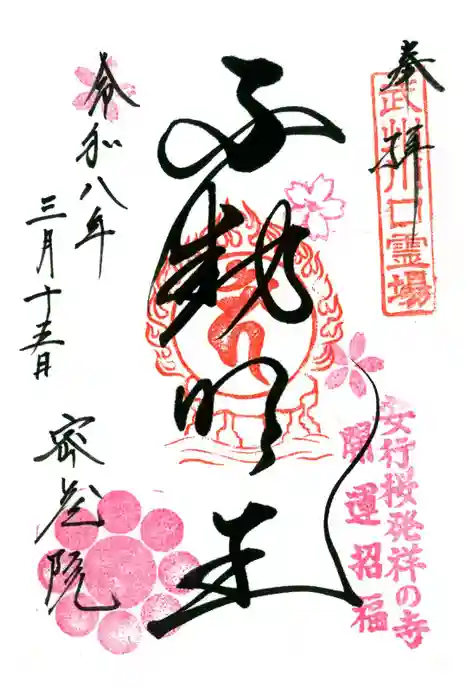 奉拝
武州川口霊場
安行桜発祥の寺
開運招福
不動明王
令和八年
三月十五日
密蔵院